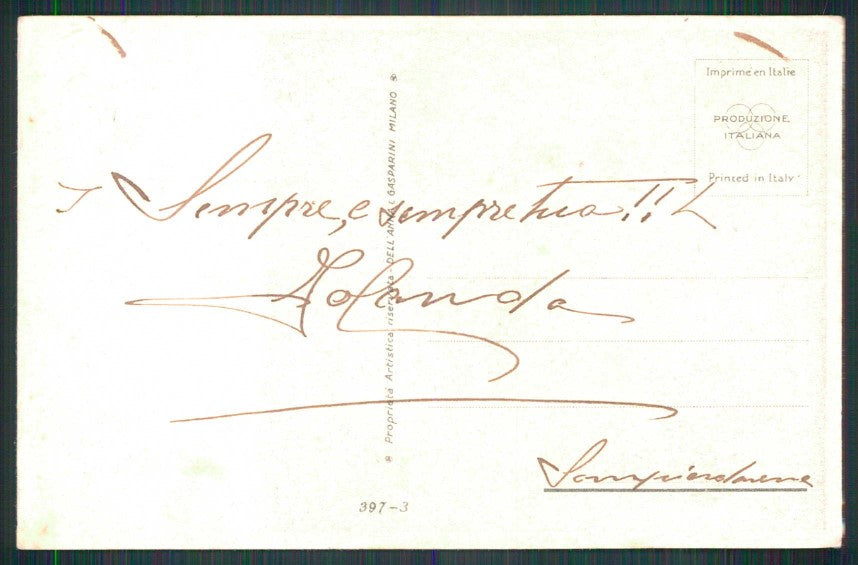 Imprimé en Italie
PRODUZIONE
ITALIANA
Printed in Italy
Sempre, e sempre tua!!
Jolanda
Sampierdarena
Proprietà Artistica riservata - DELL'ANNA & GASPARINI MILANO
397-3